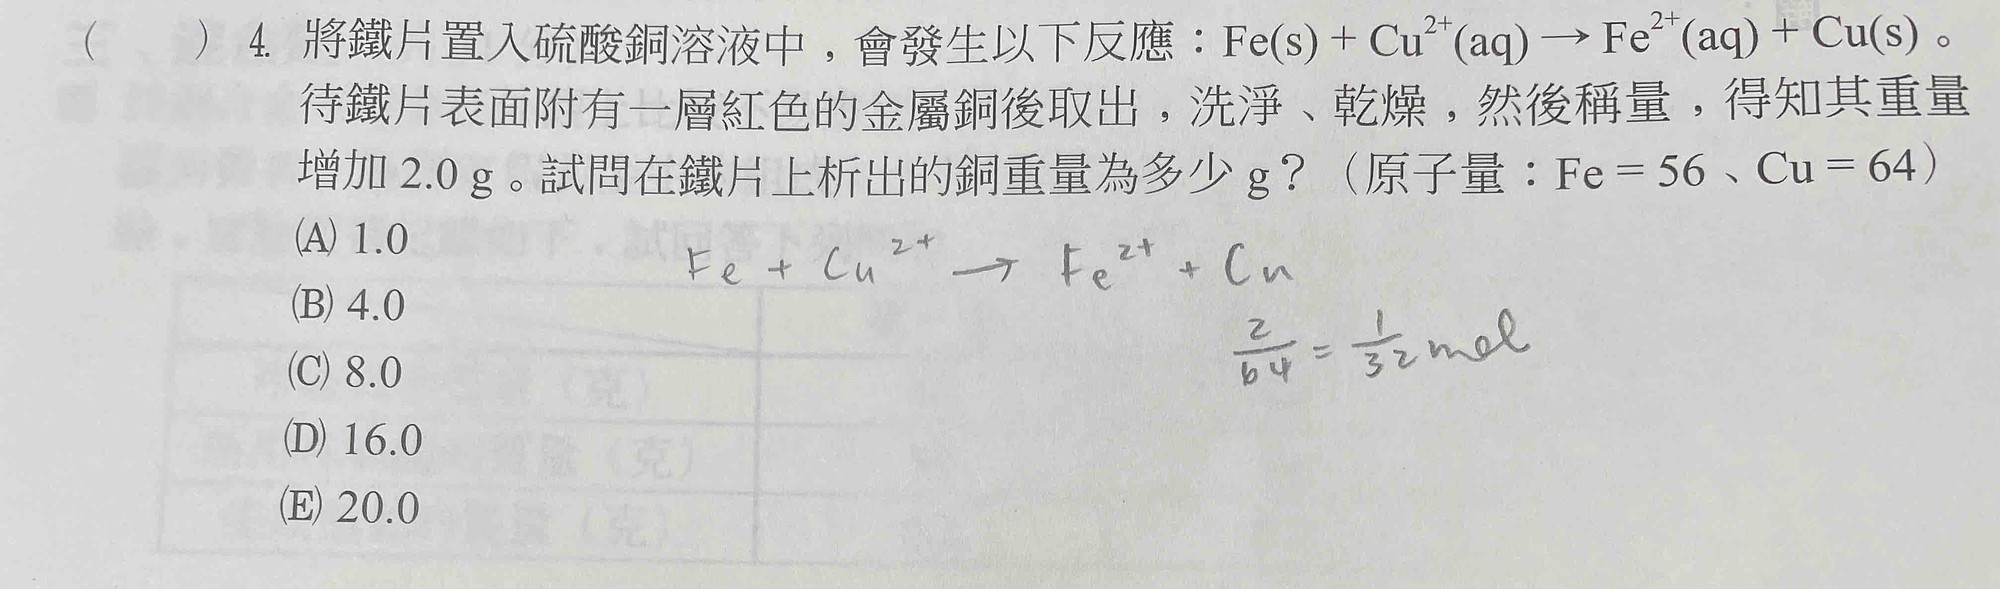 (　　) 4. 將鐵片置入硫酸銅溶液中，會發生以下反應：Fe(s) + Cu²⁺(aq) → Fe²⁺(aq) + Cu(s)。
待鐵片表面附有一層紅色的金屬銅後取出，洗淨、乾燥，然後稱量，得知其重量
增加 2.0 g。試問在鐵片上析出的銅重量為多少 g？（原子量：Fe = 56、Cu = 64）
(A) 1.0
Fe + Cu²⁺ → Fe²⁺ + Cu
(B) 4.0
2/64 = 1/32 mol
(C) 8.0
(D) 16.0
(E) 20.0